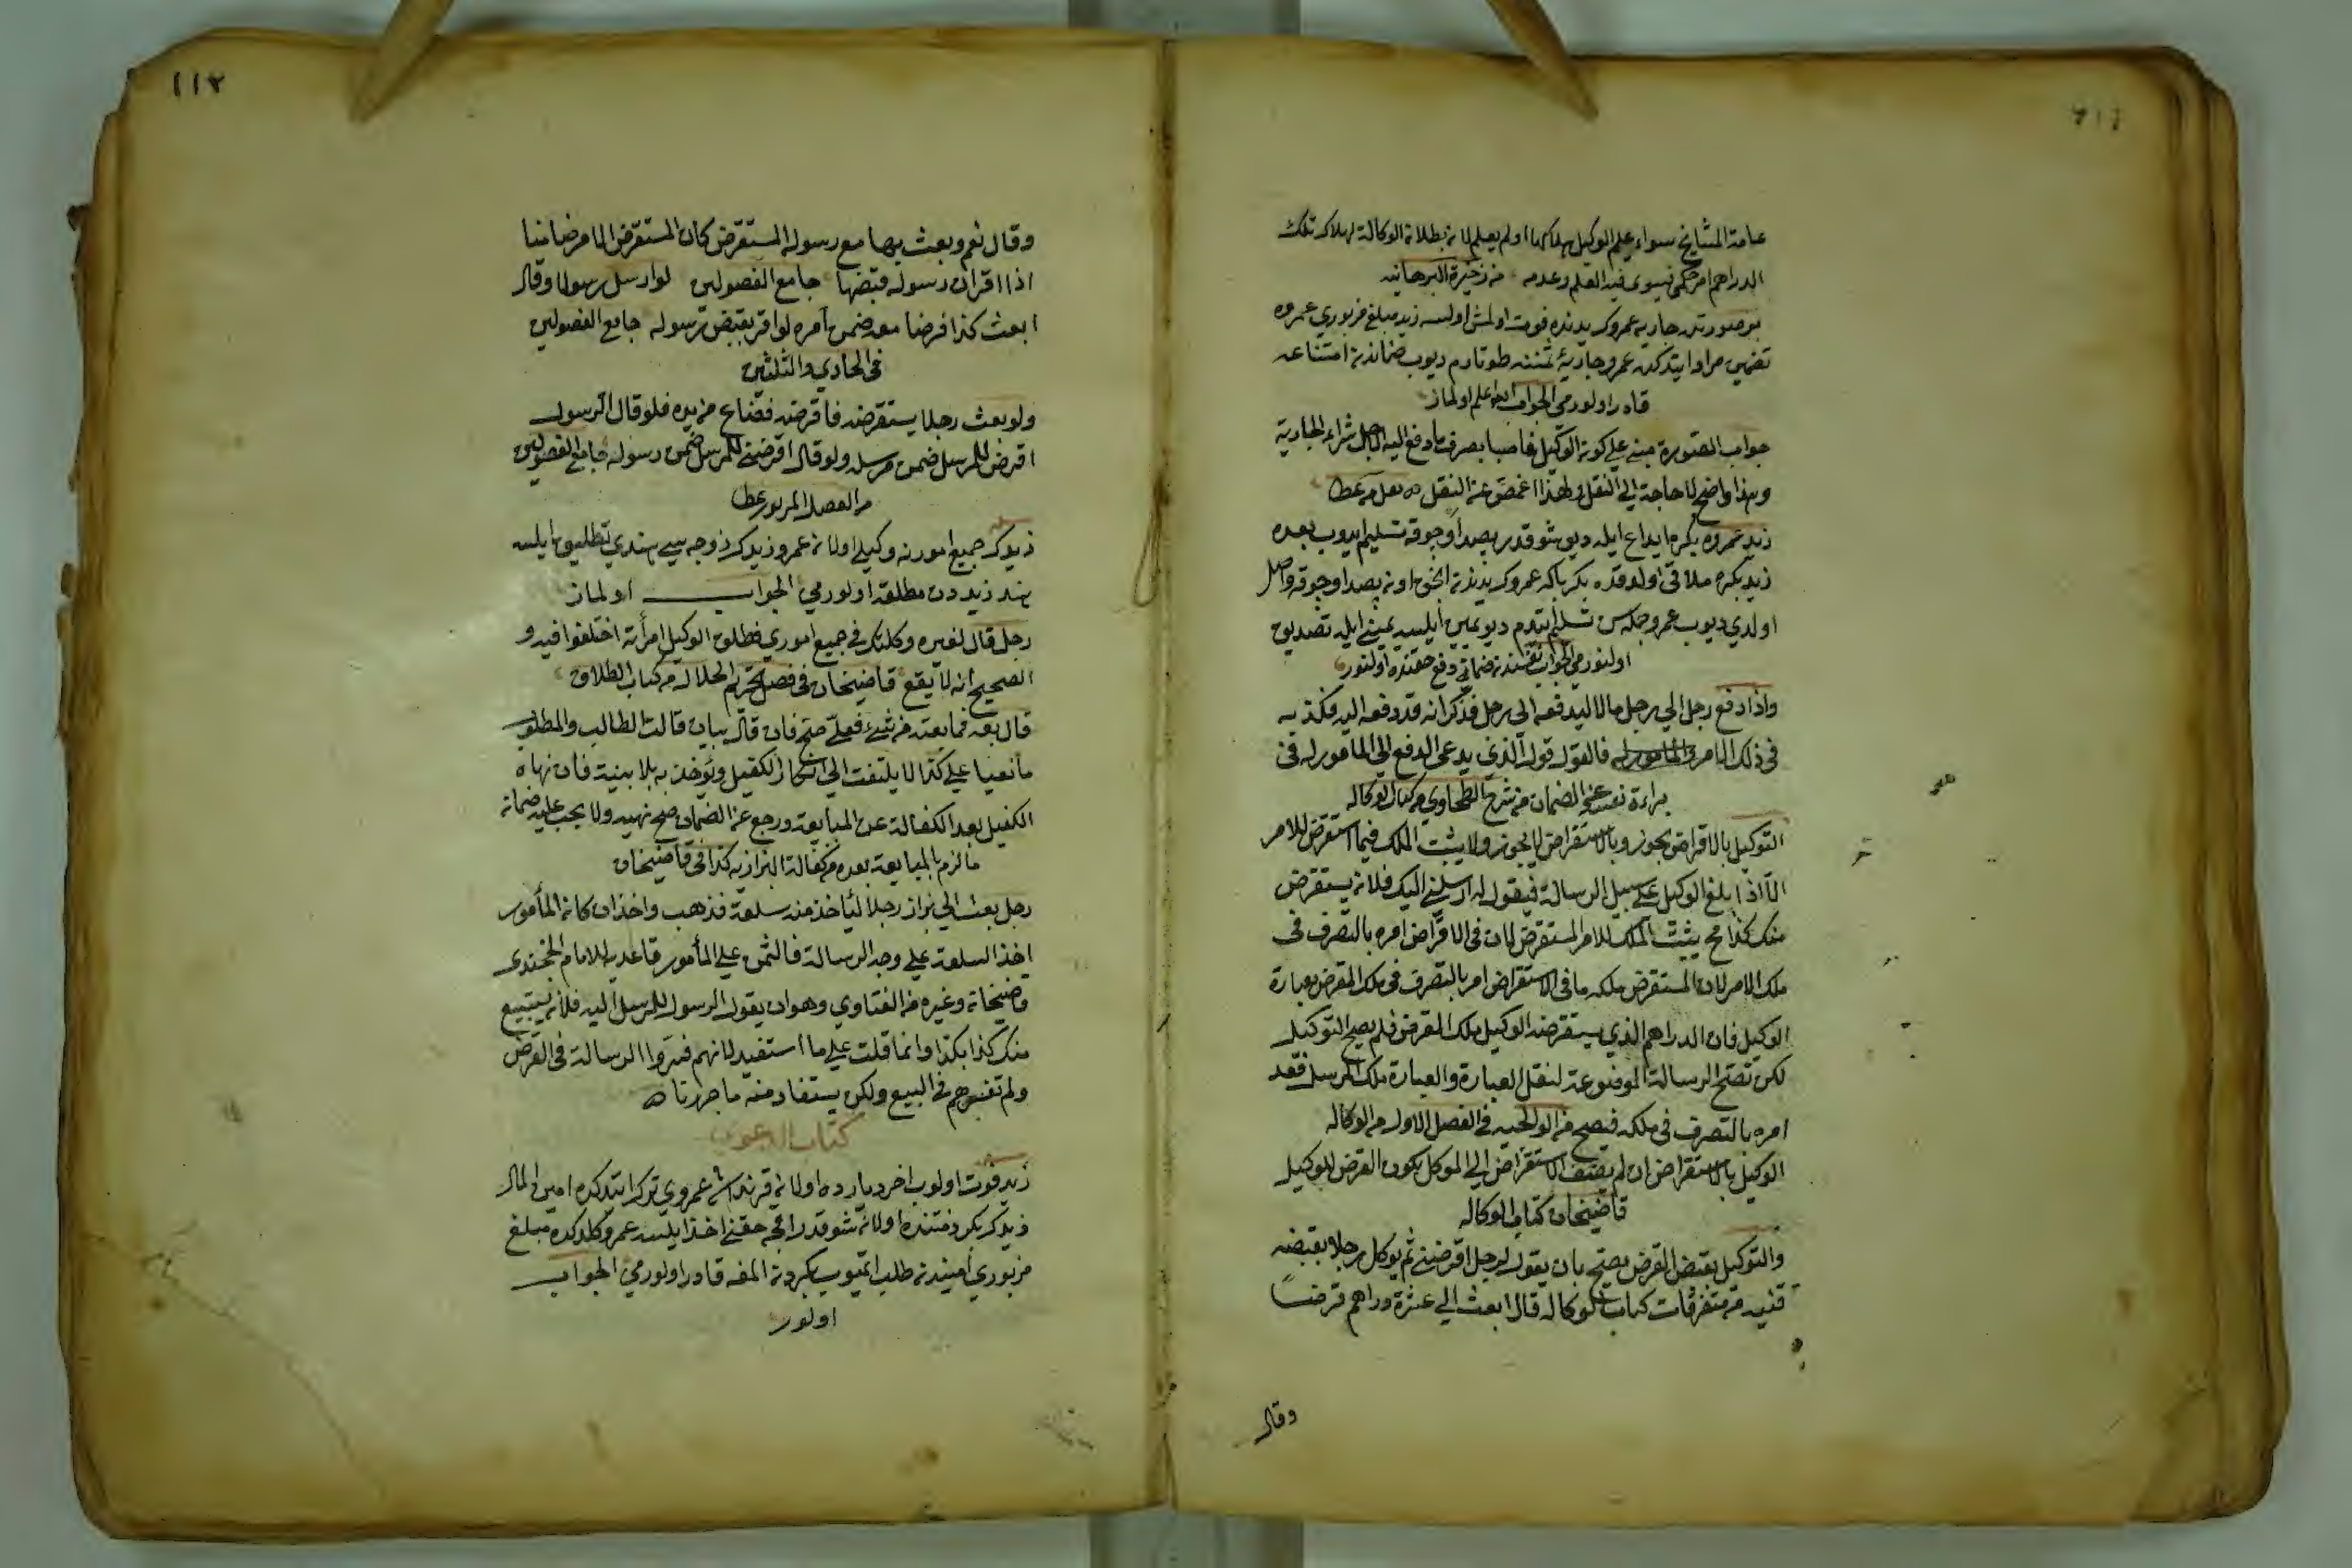 عامة المشايخ سواء علم الوكيل بهلاكها او لم يعلم لانه بطلانه الوكالة بهلاك تلك
الدراهم امر حكمي فيسوى فيه العلم وعدمه من ذخيرة البرهانيه
بو صورتده جاريه عمروك يدنده فوت اولمش اولسه زيد مبلغ مزبوري عمروه
تضمين مراد ايتدكده عمرو جاريۀ ثمننه طوتارم ديوب ضماندن امتناعه
قادر اولورمي الجواب الله اعلم اولماز
جواب الصورة مبني علي كون الوكيل غاصبا بصرف ما دفع اليه لاجل شراء الجارية
وهذا واضح لا حاجة الي النقل ولهذا اغمض عن النقل
زيد عمروه بكره ايداع ايله ديو شو قدر بصداوجوقه تسليم ايدوب بعده
زيد بكره ملاقي اولدقده بكر باكه عمروك يدندن انجق اون بصداوجوقه واصل
اولدي ديوب عمرو جمله سن تسليم ايتدم ديو يمين ايلسه يمينى ايله تصديق
اولنورمي الجواب نفسندن ضماني دفع حقنده اولنور
واذا دفع رجل الي رجل مالا ليدفعه الى رجل فذكر انه قد دفعه اليه فكذبه
في ذلك الامر والمأمور له فالقول قول الذي يدعى الدفع الي المأمور له في
براءة نفسه عن الضمان من شرح الطحاوي من كتاب الوكاله
التوكيل بالاقراض يجوز وبالاستقراض لا يجوز ولا يثبت الملك فيما استقرض للامر
الا اذا بلغ الوكيل علي سبيل الرسالة فيقول له ارسلني اليك فلان يستقرض
منك كذا فح يثبت الملك للامر المستقرض لان في الاقراض امره بالتصرف في
ملك الامر لان المستقرض ملكه ما في الاستقراض امر بالتصرف في ملك المقرض بعبارة
الوكيل فان الدراهم الذي يستقرضه الوكيل ملك المقرض فلم يصح التوكيل
لكن تصح الرسالة الموضوعة لنقل العبارة والعبارة ملك المرسل فقد
امره بالتصرف في ملكه فيصح من الولوالجيه في الفصل الاول من الوكاله
الوكيل بالاستقراض ان لم يضف الاستقراض الي الموكل يكون القرض للوكيل
قاضيخان كتاب الوكاله
والتوكيل بقبض القرض يصح بان يقول لرجل اقرضنى ثم يوكل رجلا بقبضه
قنيه من متفرقات كتاب الوكاله قال ابعث الي عشرة دراهم قرضا
وقال
١١٢
وقال نعم وبعث بها مع رسوله المستقرض كان المستقرض الامر ضامنا
اذا اقران رسوله قبضها جامع الفصولين لو ارسل رسولا وقال
ابعث كذا قرضا معه ضمن آمره لو اقر بقبض رسوله جامع الفصولين
في الحادي والثلثين
ولو بعث رجلا يستقرضه فاقرضه فضاع من يده فلو قال الرسول
اقرض للمرسل ضمن مرسله ولو قال اقرضني للمرسل ضمن رسوله جامع الفصولين
من الفصل المزبور
زيدك جميع امورنه وكيلي اولان عمرو زيدك زوجه سي هندي تطليق ايلسه
هند زيددن مطلقه اولورمي الجواب اولماز
رجل قال لغيره وكلتك في جميع اموري فطلق الوكيل امرأته اختلفوا فيه و
الصحيح انه لا يقع قاضيخان في فصل تحريم الحلال من كتاب الطلاق
قال بعه فما بعته من شيء فعلي صح فان قال بيان قالت الطالب والمطلوب
علي كذا لا يلتفت الي انكار الكفيل ويؤخذ به بلا بينة فان نهاه
الكفيل بعد الكفالة عن المبايعة ورجع عن الضمان صح نهيه ولا يجب عليه ضمان
ما لزم بالمبايعة بعده من كفالة البزازيه كذا في قاضيخان
رجل بعث الي بزاز رجلا ليأخذ منه سلعة فذهب واخذ ان كان المأمور
اخذ السلعة علي وجه الرسالة فالثمن علي المأمور قاعديه للامام الخجندى
قاضيخان وغيره من الفتاوي وهو ان يقول الرسول للمرسل اليه فلان يستبيع
منك كذا بكذا وانما قلت علي ما استفيد لانهم فسروا الرسالة في القرض
ولم تفسرهم في البيع ولكن يستفاد منه ما حررنا
كتاب الدعوى
زيد فوت اولوب اخر ديارده اولان قرنداشي عمروي ترك ايتدكده امين المال
زيدك بكر ذمتنده اولان شو قدر اقچه حقني اخذ ايلسه عمرو كلدكده مبلغ
مزبوري اميندن طلب ايتميوب بكردن المغه قادر اولورمي الجواب
اولور